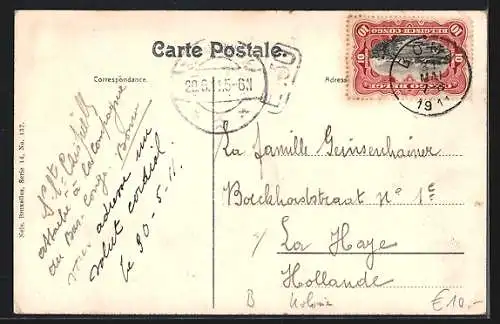 Carte Postale.
Correspondance.
Adresse
CONGO BELGE
10 10
20.6.11.5-6N
BOMA
MAI
1911
attaché à la Compagnie
du Bas-Congo Boma
vous adresse un
salut cordial
le 30-5-11.
La famille Geinsenhainer
Boeckhorststraat n° 1E
La Haye
Hollande
B
Kolonie
€10,-
Nels, Bruxelles, Serie 14, No. 137.